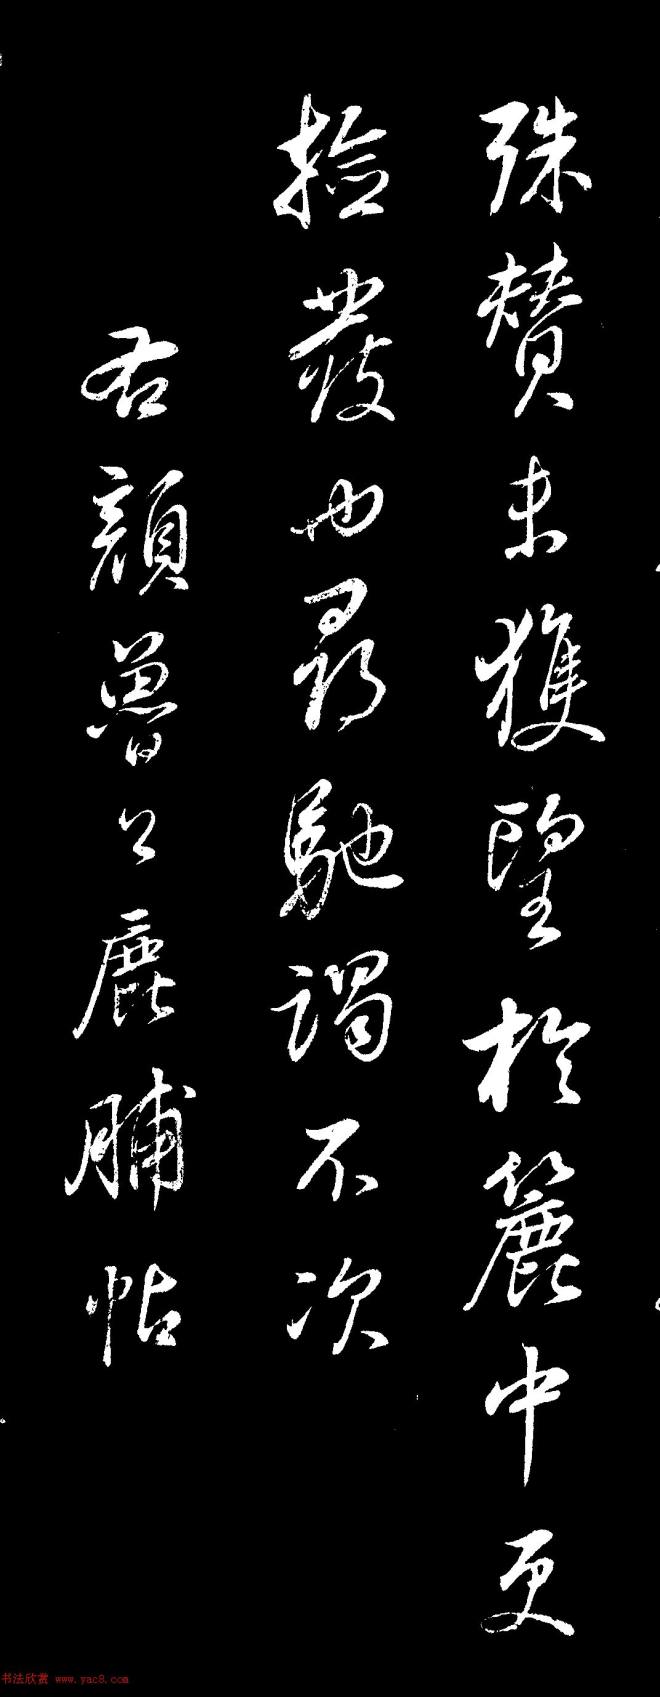 殊賛未獲望於簏中更
撿發也尋馳謁不次
右顔魯公鹿脯帖
书法欣赏 www.yac8.com